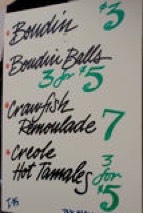 • Boudin $3
• Boudin Balls
3 for $5
• Crawfish
Remoulade 7
• Creole
Hot Tamales 3 for $5